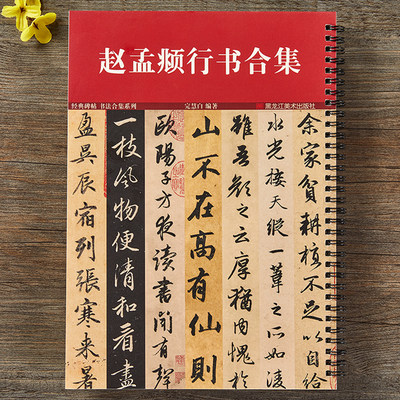 赵孟頫行书合集
经典碑帖 书法合集系列
完慧白 编著
黑龙江美术出版社
余家貧耕植不足以自給
水光接天縱一葦之所如凌
雖吾顏之云厚猶内愧於
山不在高有仙則
歐陽子方夜讀書聞有聲
一枝風物便清和看盡
盈昃辰宿列張寒來暑